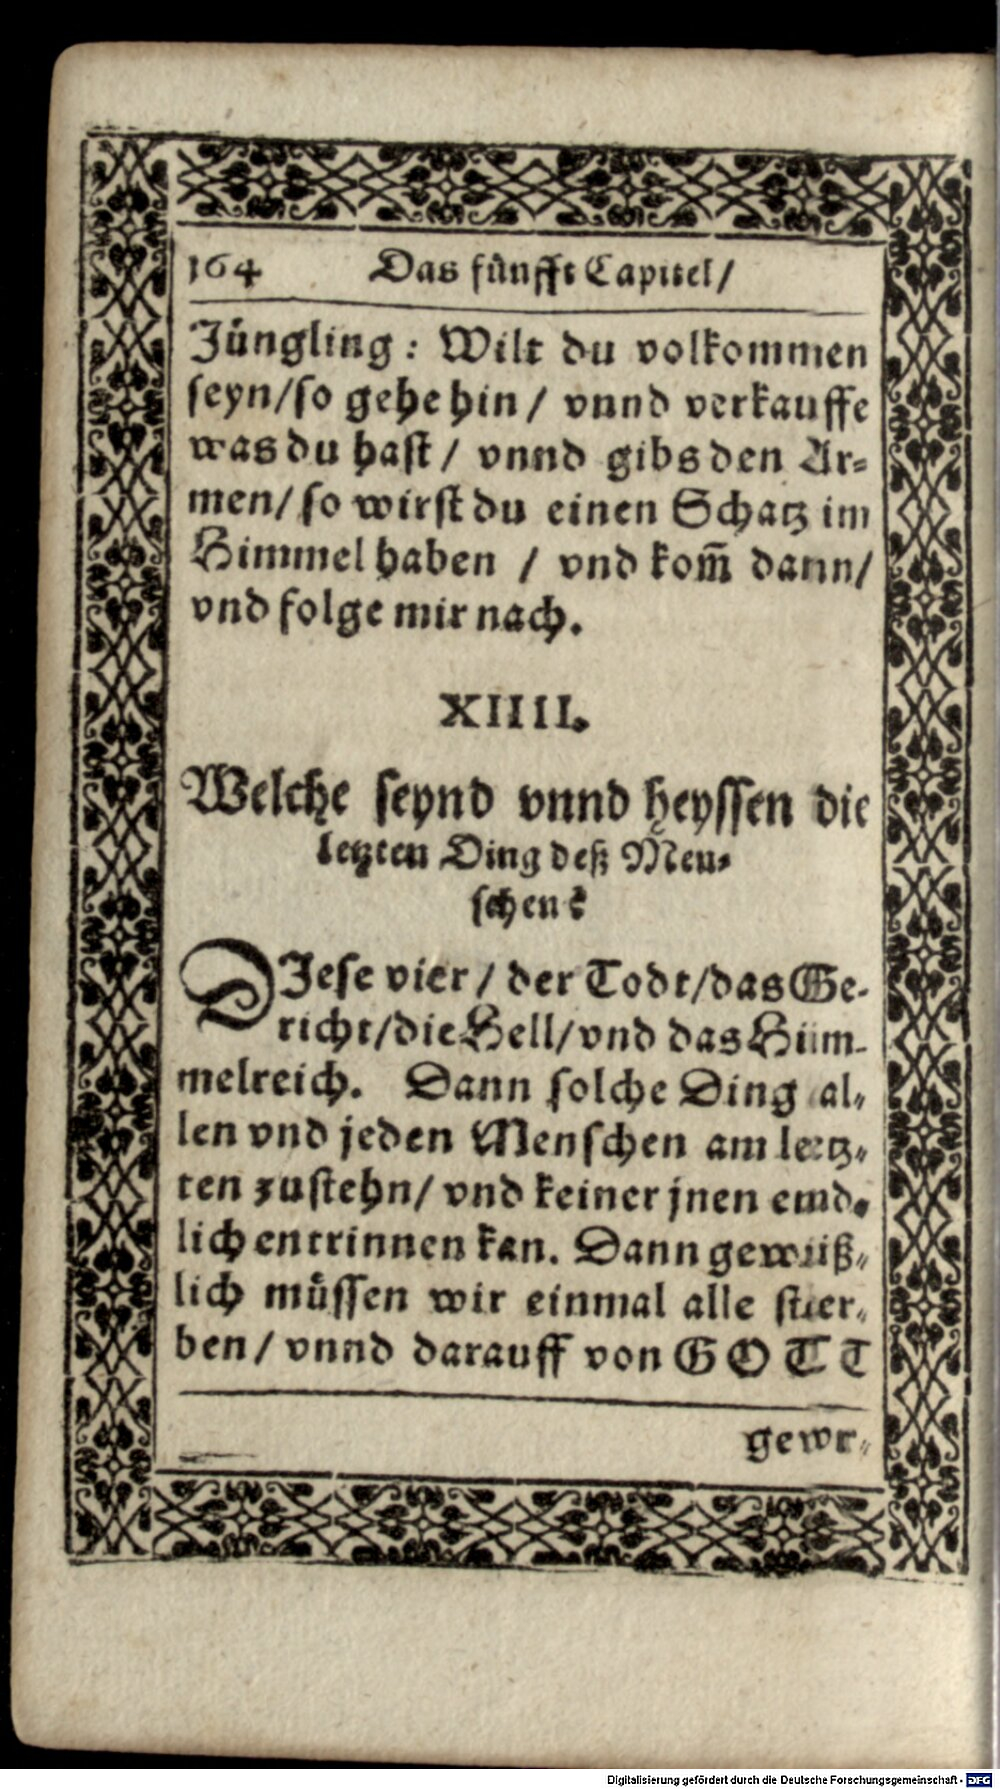 164 Das fünfft Capitel/
Jüngling: Wilt du volkommen
seyn/so gehe hin/ vnnd verkauffe
was du hast/ vnnd gibs den Ar-
men/ so wirst du einen Schatz im
Himmel haben / vnd kom̄ dann/
vnd folge mir nach.
XIIII.
Welche seynd vnnd heyssen die
letzten Ding deß Men-
schen?
DIese vier/ der Todt/das Ge-
richt/die Hell/vnd das Him-
melreich. Dann solche Ding al-
len vnd jeden Menschen am letz-
ten zustehn/ vnd keiner jnen end-
lich entrinnen kan. Dann gewiß-
lich müssen wir einmal alle ster-
ben/ vnnd darauff von GOTT
gewr-
Digitalisierung gefördert durch die Deutsche Forschungsgemeinschaft - DFG